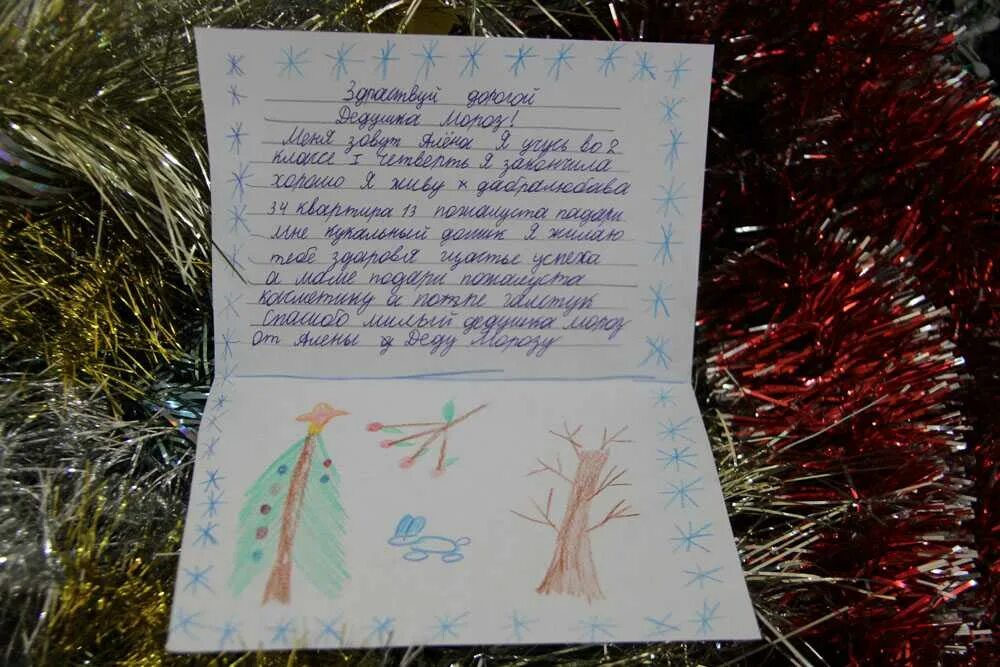 Здраствуй дорогой
Дедушка Мороз!
Меня зовут Алёна Я учусь во 2
классе I четверть Я закончила
хорошо Я живу х дабралюбава
34 квартира 13 пожалуста падари
мне кукальный домик Я жилаю
тебе здоровья щастье успеха
а маме подари пожалуста
касметику а папке галстук
Спасибо милый дедушка мороз
От Алены д Деду Морозу